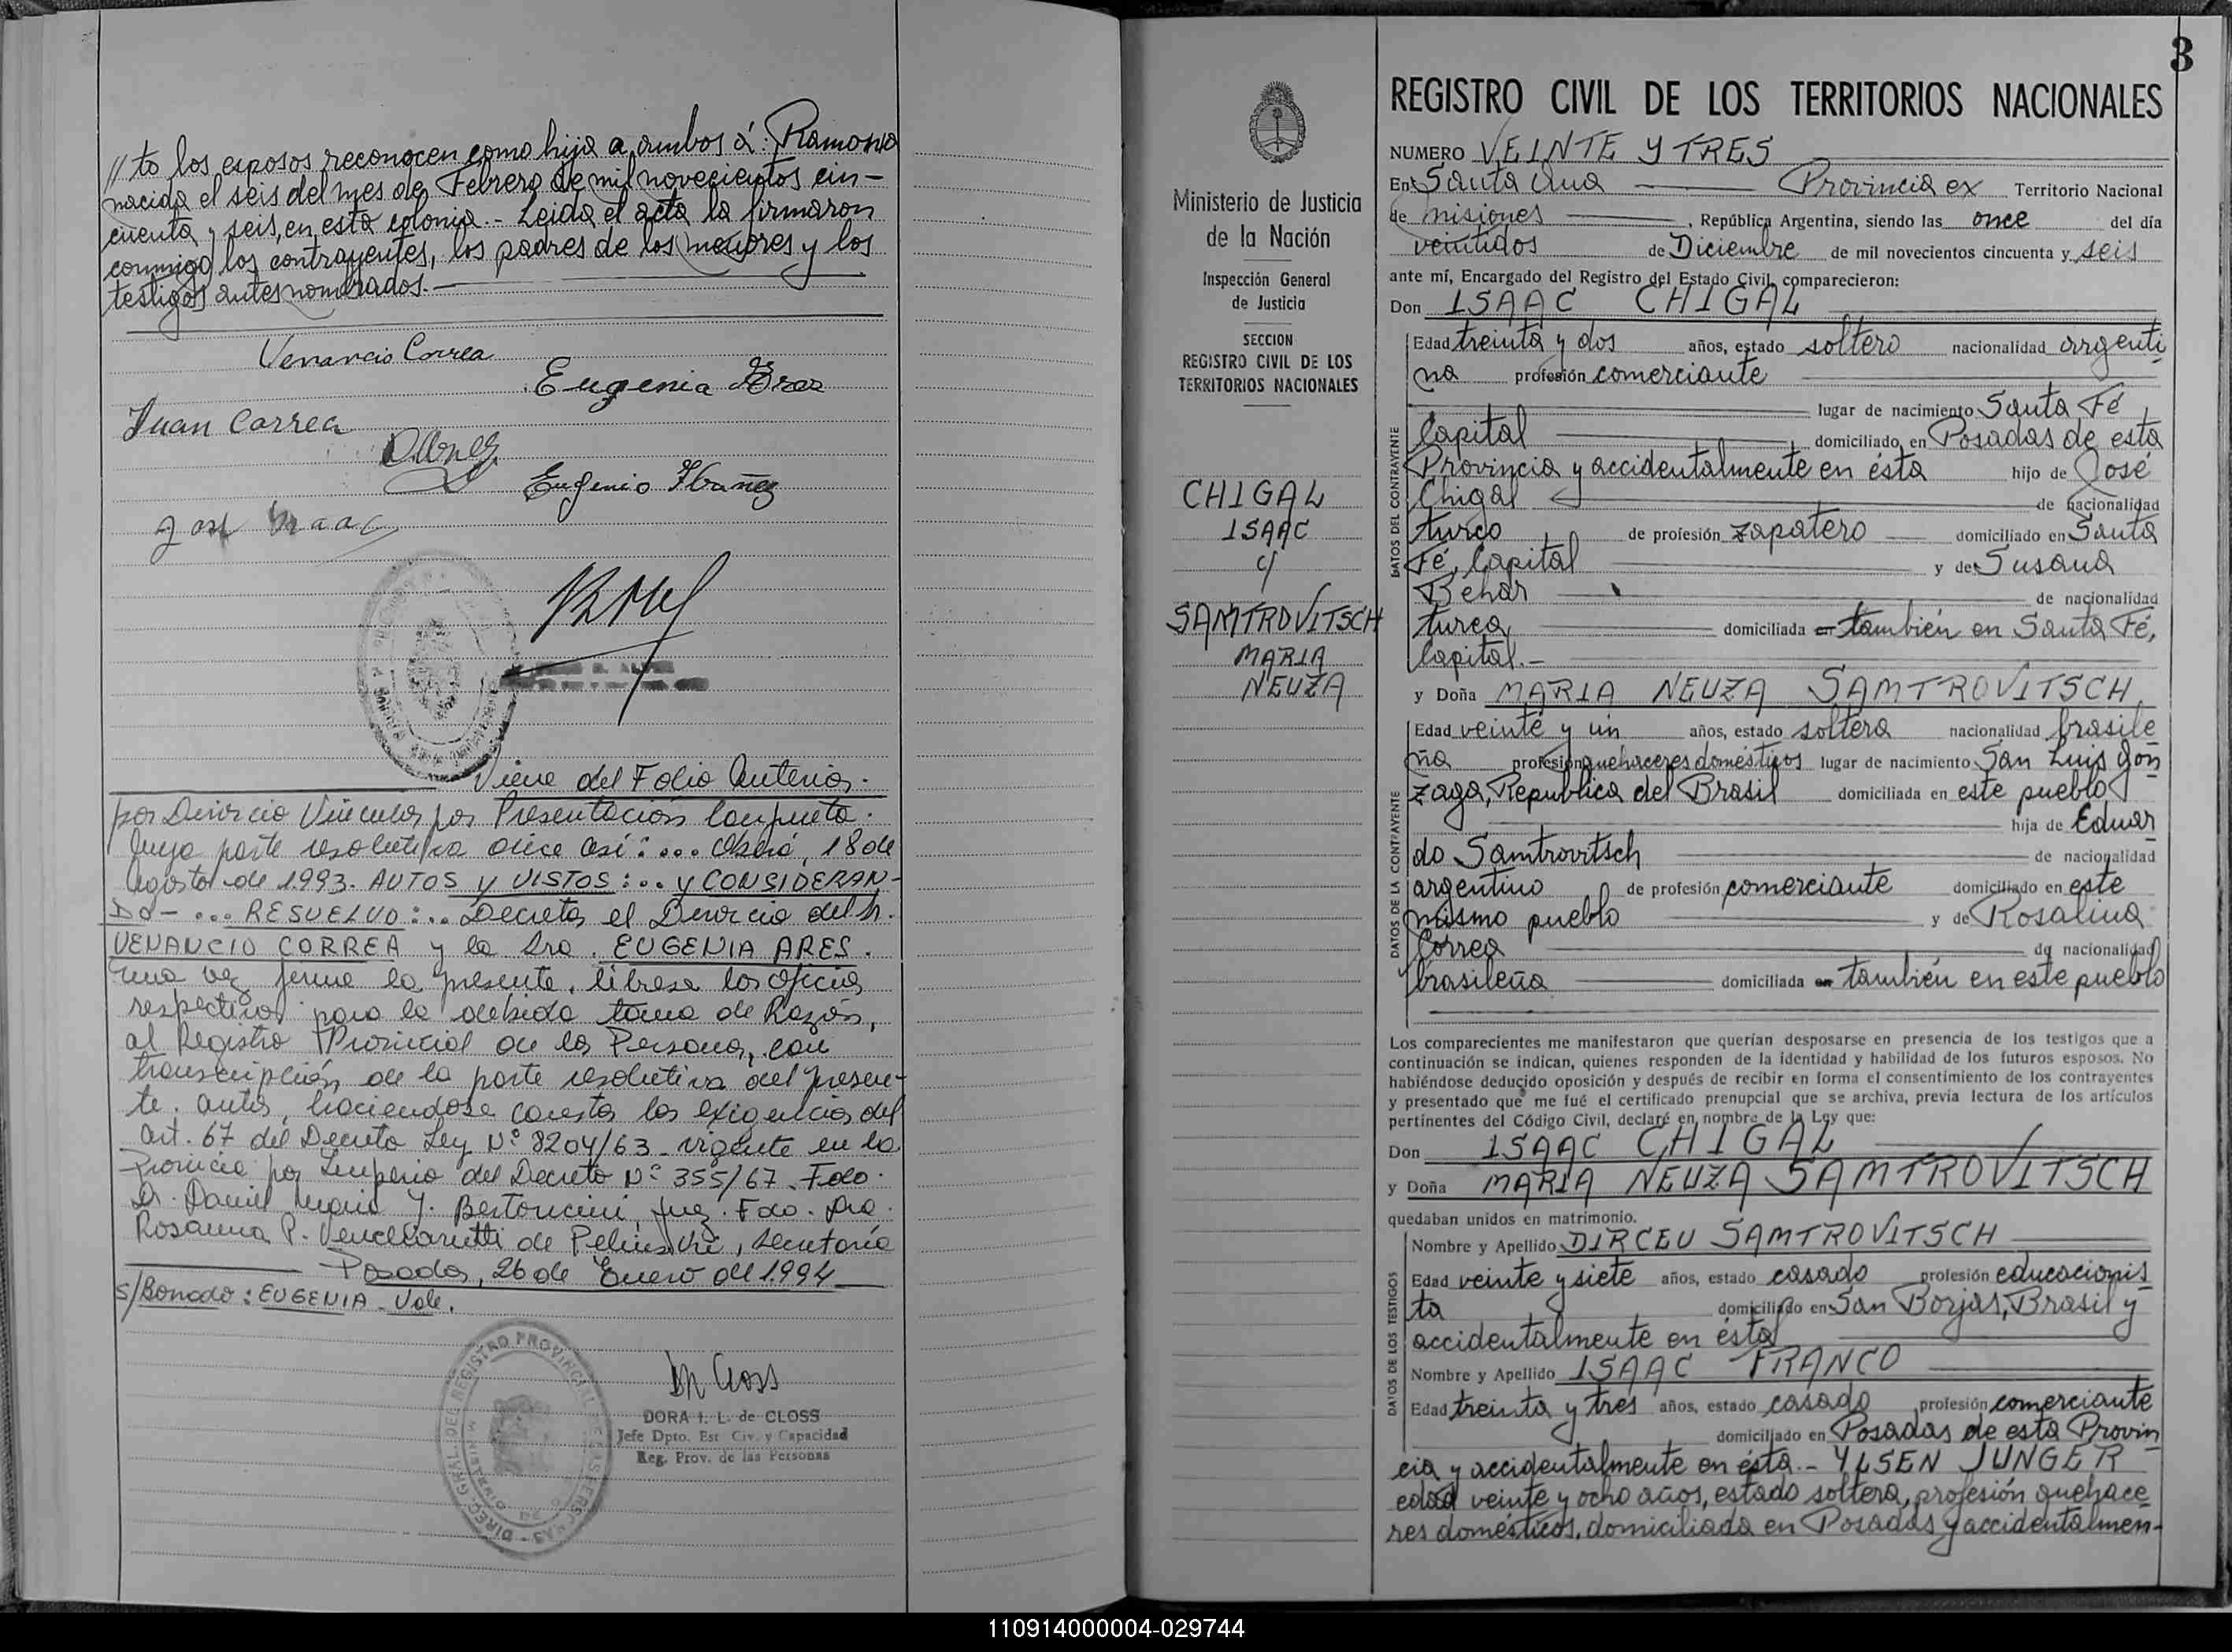 // to los esposos reconocen como hija a ambos á: Ramona
nacida el seis del mes de Febrero de mil novecientos cin-
cuenta y seis, en esta colonia.- Leida el acta la firmaron
conmigo los contrayentes, los padres de los menores y los
testigos antes nombrados.-
Venancio Correa
Eugenia
Juan Correa
Eugenio Ibañez
Viene del Folio Anterior.
por Divorcio Vincular por Presentación Conjunta.
Cuya parte resolutiva dice así: ... Oberá, 18 de
Agosto de 1.993. AUTOS y VISTOS: .. y CONSIDERAN-
DO- ... RESUELVO: .. Decretar el Divorcio del Sr.
VENANCIO CORREA y la Sra. EUGENIA ARES.
una vez firme la presente, líbrese los oficios
respectivos para la debida toma de Razón,
al Registro Provincial de las Personas, con
transcripción de la parte resolutiva del presen-
te. autos, haciendose constar las exigencias del
art. 67 del Decreto Ley N° 8204/63 - vigente en la
Provincia por Imperio del Decreto N° 355/67. Fdo.
Dr. Daniel Mario J. Bertoncini, Juez. Fdo. Dra.
Rosanna P. Venchiarutti de , secretaria
Posadas, 26 de Enero del 1.994
s/Borrado: EUGENIA - Vale.
DORA I. L. de CLOSS
Jefe Dpto. Est Civ. y Capacidad
Reg. Prov. de las Personas
3
Ministerio de Justicia
de la Nación
Inspección General
de Justicia
SECCION
REGISTRO CIVIL DE LOS
TERRITORIOS NACIONALES
CHIGAL
ISAAC
c/
SAMTROVITSCH
MARIA
NEUZA
REGISTRO CIVIL DE LOS TERRITORIOS NACIONALES
NUMERO VEINTE Y TRES
En Santa Ana Provincia ex Territorio Nacional
de misiones, República Argentina, siendo las once del día
veintidos de Diciembre de mil novecientos cincuenta y seis
ante mí, Encargado del Registro del Estado Civil, comparecieron:
Don ISAAC CHIGAL
DATOS DEL CONTRAYENTE
Edad treinta y dos años, estado soltero nacionalidad argenti
na profesión comerciante
lugar de nacimiento Santa Fé,
Capital domiciliado en Posadas de esta
Provincia y accidentalmente en ésta hijo de José
Chigal de nacionalidad
turco de profesión zapatero domiciliado en Santa
Fé, Capital y de Susana
Behar de nacionalidad
turca, domiciliada en también en Santa Fé,
Capital.-
y Doña MARIA NEUZA SAMTROVITSCH
DATOS DE LA CONTRAYENTE
Edad veinte y un años, estado soltera nacionalidad brasile
ña profesión quehaceres domésticos lugar de nacimiento San Luis Gon
zaga, Republica del Brasil domiciliada en este pueblo
hija de Eduar
do Samtrovitsch de nacionalidad
argentino de profesión comerciante domiciliado en este
mismo pueblo y de Rosalina
Correa de nacionalidad
brasileña domiciliada en también en este pueblo
Los comparecientes me manifestaron que querían desposarse en presencia de los testigos que a
continuación se indican, quienes responden de la identidad y habilidad de los futuros esposos. No
habiéndose deducido oposición y después de recibir en forma el consentimiento de los contrayentes
y presentado que me fué el certificado prenupcial que se archiva, previa lectura de los artículos
pertinentes del Código Civil, declaré en nombre de la Ley que:
Don ISAAC CHIGAL
y Doña MARIA NEUZA SAMTROVITSCH
quedaban unidos en matrimonio.
DATOS DE LOS TESTIGOS
Nombre y Apellido DIRCEU SAMTROVITSCH
Edad veinte y siete años, estado casado profesión educacionis
ta domiciliado en San Borjas, Brasil y
accidentalmente en ésta
Nombre y Apellido ISAAC FRANCO
Edad treinta y tres años, estado casado profesión comerciante
domiciliado en Posadas de esta Provin
cia y accidentalmente en ésta.- YLSEN JUNGER
edad veinte y ocho años, estado soltera, profesión quehace
res domésticos, domiciliada en Posadas y accidentalmen-
110914000004-029744